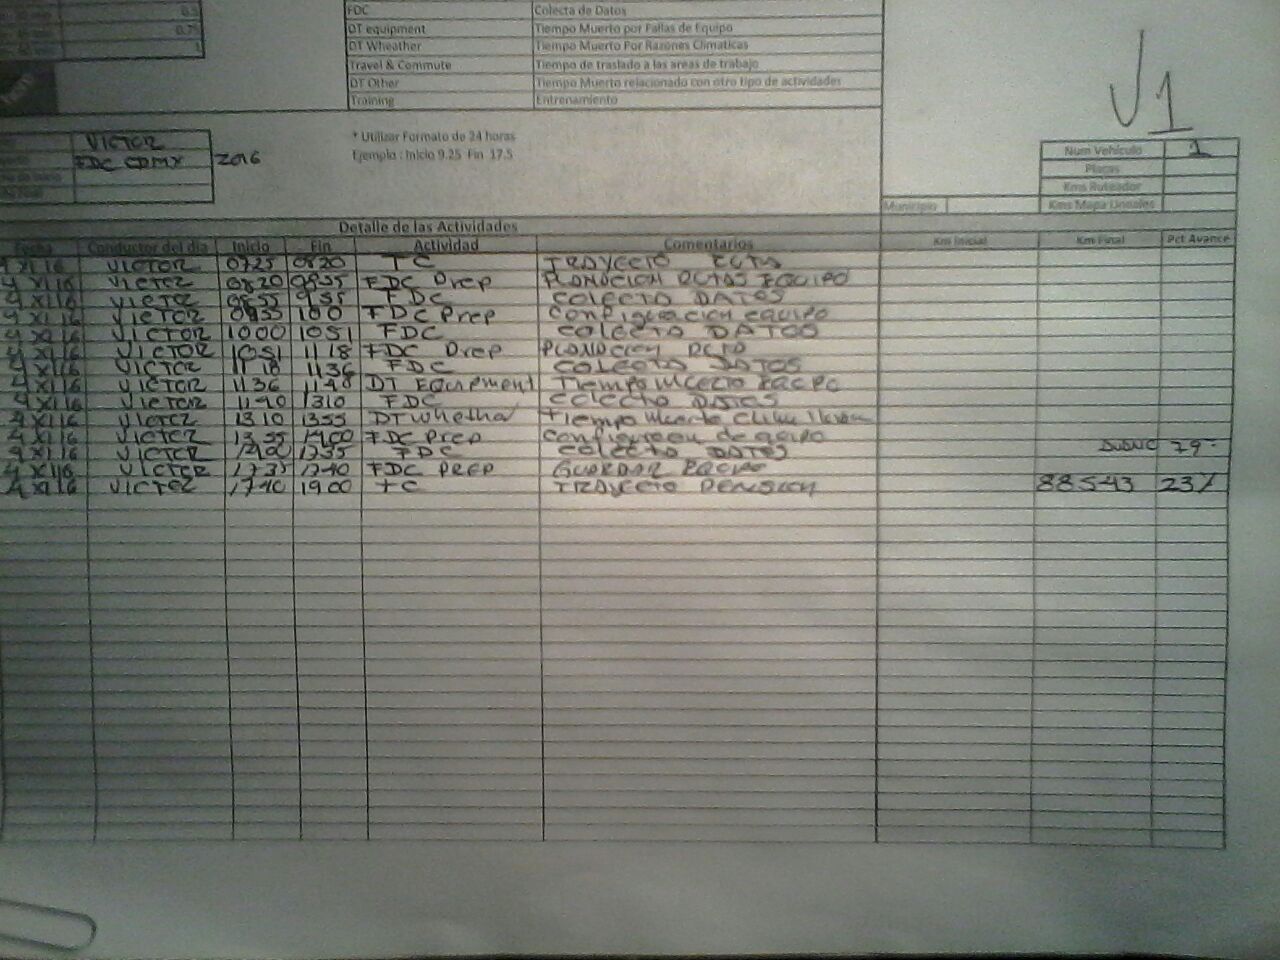 FDC Colecta de Datos
DT equipment Tiempo Muerto por Fallas de Equipo
DT Wheather Tiempo Muerto Por Razones Climaticas
Travel & Commute Tiempo de traslado a las areas de trabajo
DT Other Tiempo Muerto relacionado con otro tipo de actividades
Training Entrenamiento
J1
VICTOR
FDC CDMX 2016
* Utilizar Formato de 24 horas
Ejemplo : Inicio 9.25 Fin 17.5
Num Vehiculo 1
Placas
Kms Ruteador
Municipio Kms Mapa Lineales
Detalle de las Actividades
Fecha Conductor del dia Inicio Fin Actividad Comentarios Km Inicial Km Final Pct Avance
4 XI 16 VICTOR 0725 0820 TC
4 XI 16 VICTOR 0820 FDC Prep EQUIPO
4 XI 16 VICTOR FDC COLECTA DATOS
4 XI 16 VICTOR FDC Prep Configuracion equipo
4 XI 16 VICTOR 1000 1051 FDC COLECTA DATOS
4 XI 16 VICTOR 1051 1118 FDC Prep
4 XI 16 VICTOR 1118 1136 FDC COLECTA DATOS
4 XI 16 VICTOR 1136 DT Equipment Tiempo Muerto
4 XI 16 VICTOR 1310 FDC COLECTA DATOS
4 XI 16 VICTOR 1310 1355 DT Whether Tiempo Muerto
4 XI 16 VICTOR 1355 1400 FDC Prep Configuracion de equipo
4 XI 16 VICTOR 1400 1735 FDC COLECTA DATOS 79
4 XI 16 VICTOR 1735 1740 FDC PREP GUARDAR EQUIPO
4 XI 16 VICTOR 1740 1900 TC TRAYECTO PENSION 88543 23%